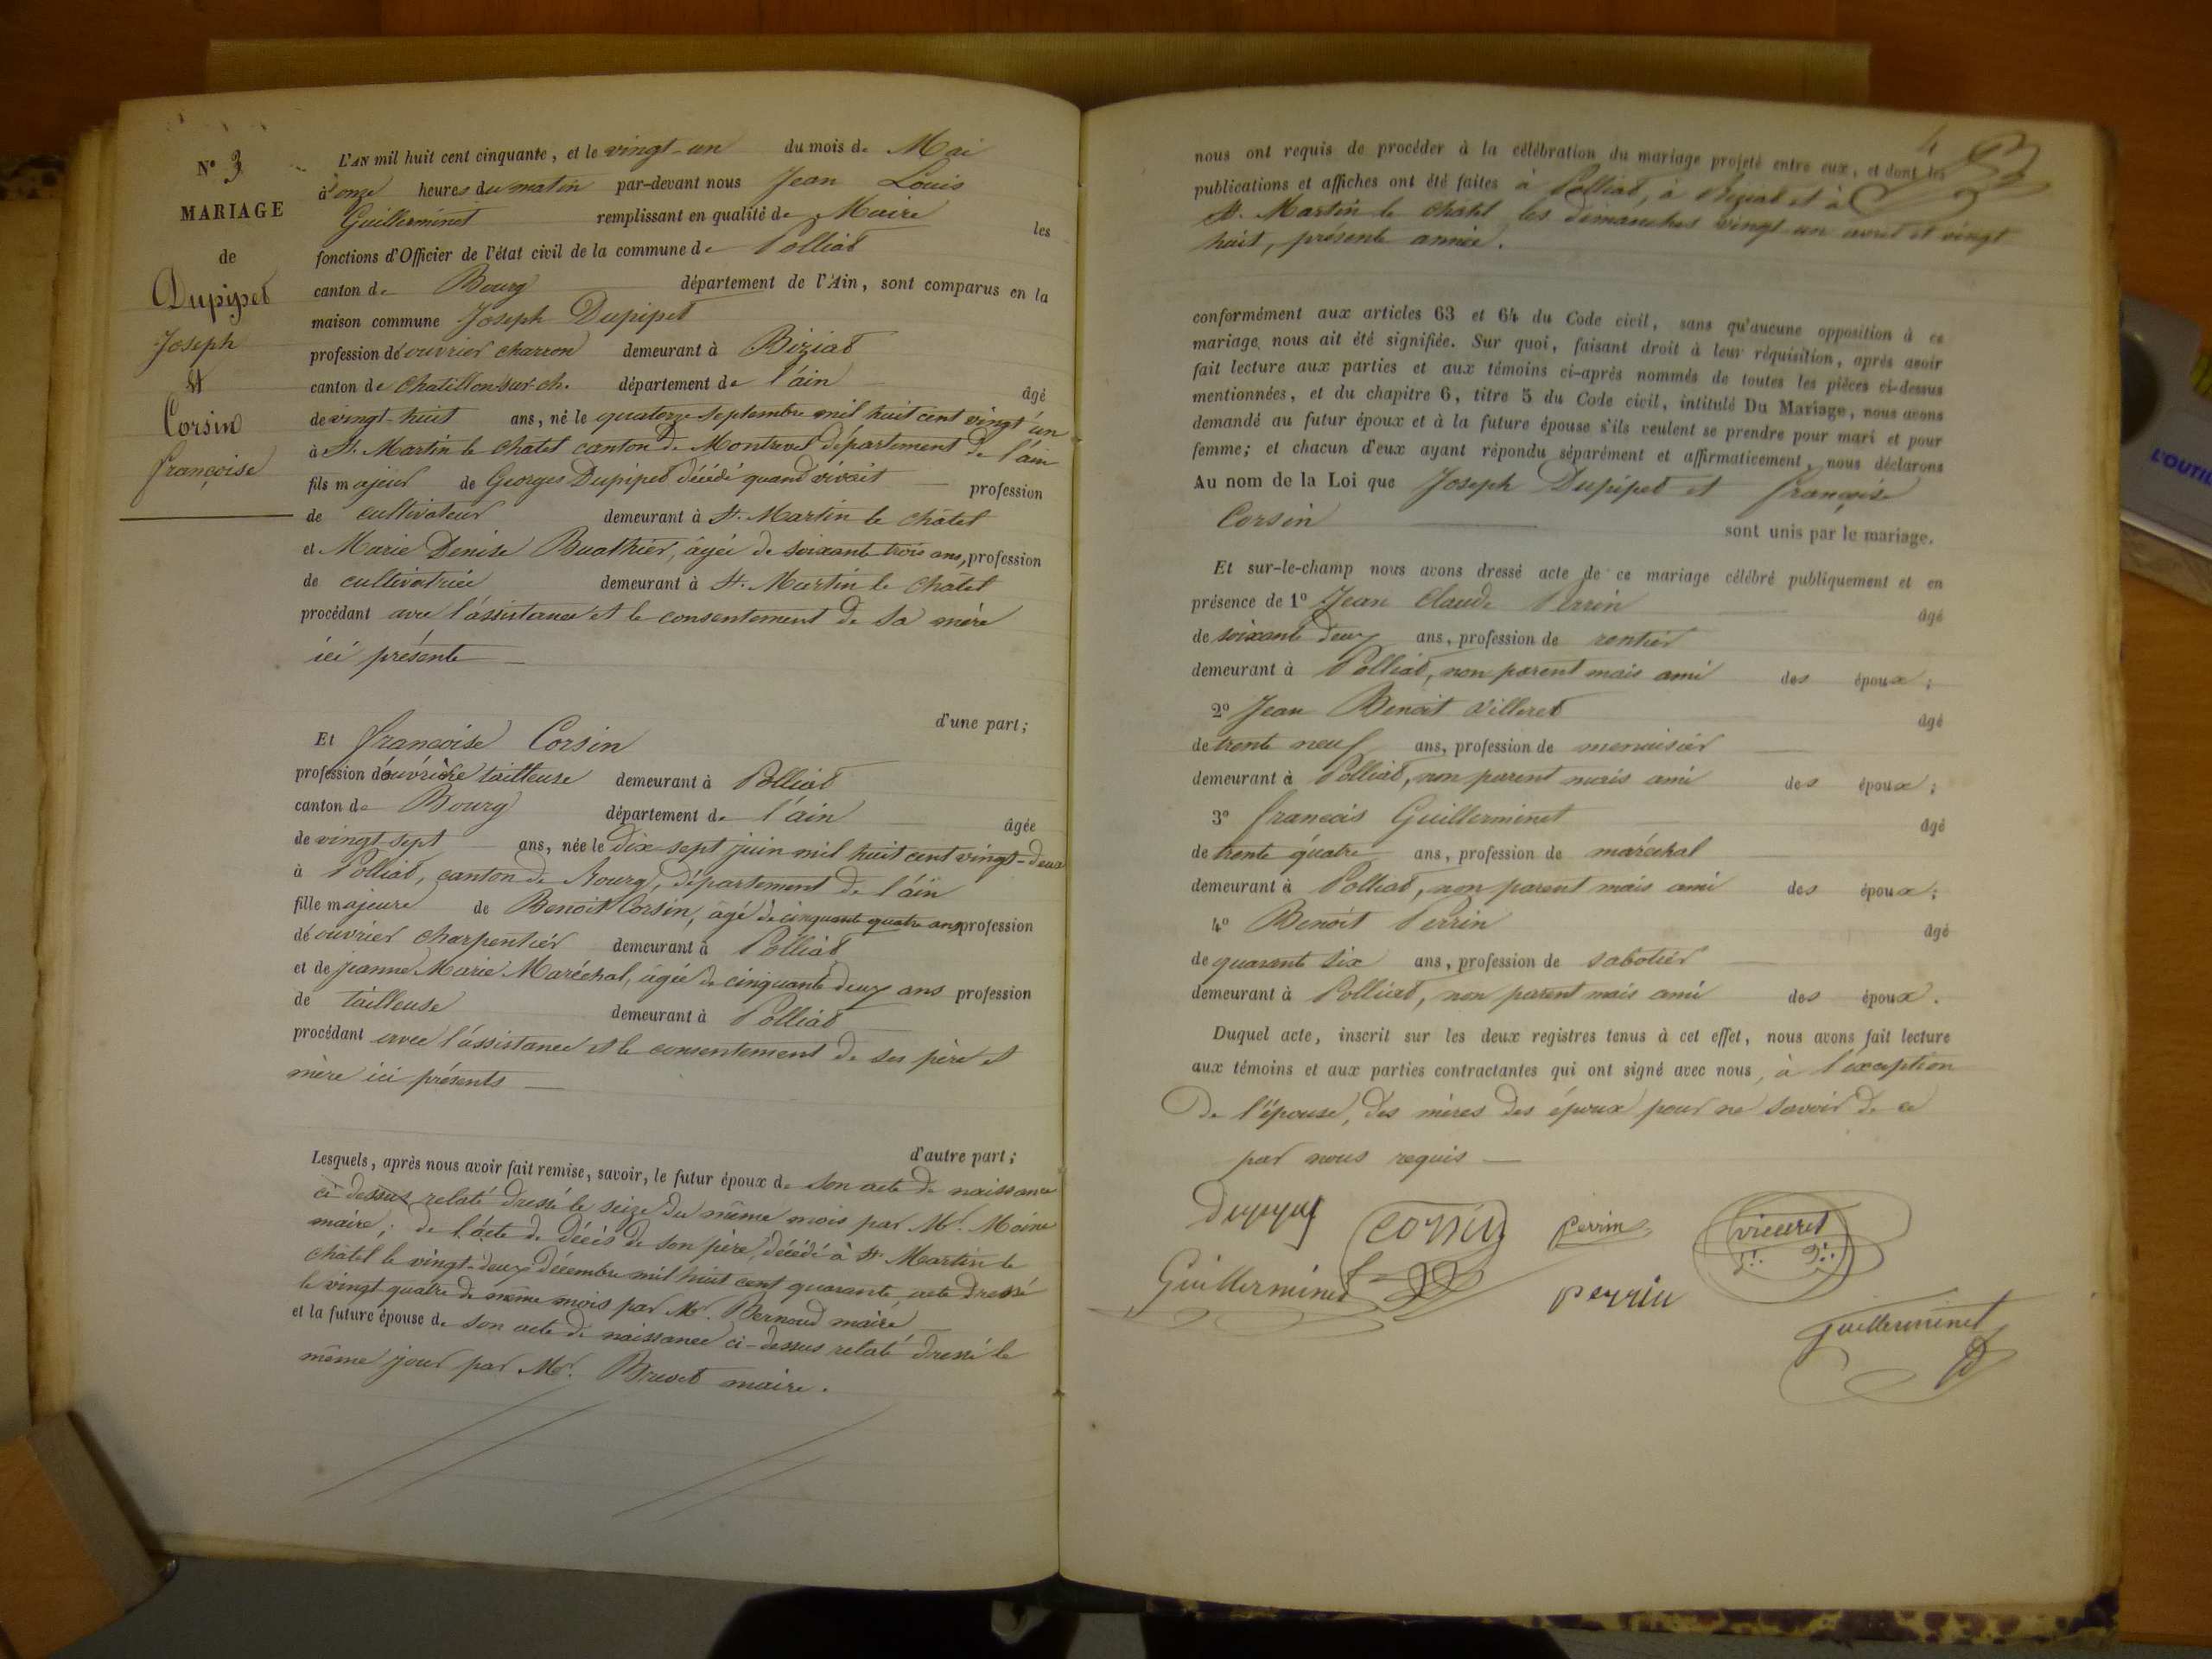 N° 3
MARIAGE
de
Dupipet
Joseph
et
Corsin
françoise
L'AN mil huit cent cinquante, et le vingt-un du mois de Mai
à onze heures du matin par-devant nous Jean Louis
Guillerminet remplissant en qualité de Maire les
fonctions d'Officier de l'état civil de la commune de Polliat
canton de Bourg département de l'Ain, sont comparus en la
maison commune Joseph Dupipet
profession de ouvrier charron demeurant à Biziat
canton de Chatillon-sur-ch. département de l'áin âgé
de vingt-huit ans, né le quatorze septembre mil huit cent vingt un
à St. Martin le chatel canton de Montrevel département de l'ain
fils majeur de Georges Dupipet décédé quand vivait profession
de cultivateur demeurant à St. Martin le châtel
et Marie Denise Buathier, âgée de soixante trois ans, profession
de cultivatrice demeurant à St. Martin le Chatel
procédant avec l'assistance et le consentement de sa mère
ici présente
d'une part;
Et françoise Corsin
profession d'ouvrière tailleuse demeurant à Polliat
canton de Bourg département de l'áin âgée
de vingt-sept ans, née le dix-sept juin mil huit cent vingt-deux
à Polliat, canton de Bourg, département de l'áin
fille majeure de Benoit Corsin, âgé de cinquante quatre ans profession
de ouvrier charpentier demeurant à Polliat
et de jeanne Marie Maréchal, âgée de cinquante deux ans profession
de tailleuse demeurant à Polliat
procédant avec l'assistance et le consentement de ses père et
mère ici présents
d'autre part;
Lesquels, après nous avoir fait remise, savoir, le futur époux de son acte de naissance
ci-dessus relaté dressé le seize du même mois par Mr. Moine
maire; de l'acte de décès de son père, décédé à St. Martin le
châtel le vingt-deux décembre mil huit cent quarante, acte dressé
le vingt quatre de même mois par Mr. Bernoud maire
et la future épouse de son acte de naissance ci-dessus relaté dressé le
même jour par Mr. Bruet maire.
4
nous ont requis de procéder à la célébration du mariage projeté entre eux, et dont les
publications et affiches ont été faites à Polliat, à Biziat et à
St. Martin le châtel les dimanches vingt-un avril et vingt
huit, présente année.
conformément aux articles 63 et 64 du Code civil, sans qu'aucune opposition à ce
mariage nous ait été signifiée. Sur quoi, faisant droit à leur réquisition, après avoir
fait lecture aux parties et aux témoins ci-après nommés de toutes les pièces ci-dessus
mentionnées, et du chapitre 6, titre 5 du Code civil, intitulé Du Mariage, nous avons
demandé au futur époux et à la future épouse s'ils veulent se prendre pour mari et pour
femme; et chacun d'eux ayant répondu séparément et affirmativement, nous déclarons
Au nom de la Loi que Joseph Dupipet et françoise
Corsin sont unis par le mariage.
Et sur-le-champ nous avons dressé acte de ce mariage célébré publiquement et en
présence de 1° Jean Claude Perrin âgé
de soixante deux ans, profession de rentier
demeurant à Polliat, non parent mais ami des époux;
2° Jean Benoit Villeret âgé
de trente neuf ans, profession de menuisier
demeurant à Polliat, non parent mais ami des époux;
3° francois Guillerminet âgé
de trente quatre ans, profession de maréchal
demeurant à Polliat, non parent mais ami des époux;
4° Benoit Perrin âgé
de quarante six ans, profession de sabotier
demeurant à Polliat, non parent mais ami des époux.
Duquel acte, inscrit sur les deux registres tenus à cet effet, nous avons fait lecture
aux témoins et aux parties contractantes qui ont signé avec nous, à l'exception
De l'épouse, des mères des époux pour ne savoir de ce
par nous requis
corsin perrin
Guillerminet perrin
Guillerminet
L'OUTIL